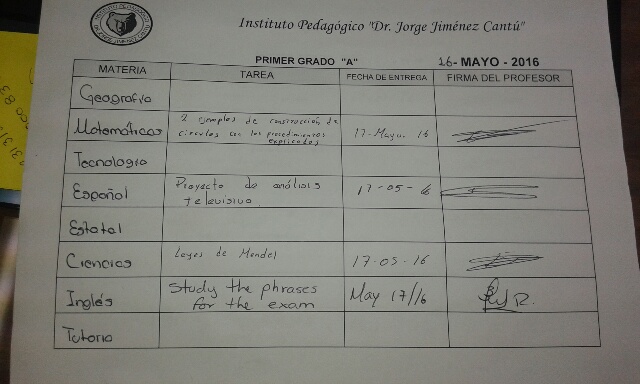 Instituto Pedagógico "Dr. Jorge Jiménez Cantú"
PRIMER GRADO "A" 16- MAYO - 2016
MATERIA TAREA FECHA DE ENTREGA FIRMA DEL PROFESOR
Geografia
Matemáticas 2 ejemplos de construcción de
circulos con los procedimientos
explicados 17-Mayo. 16
Tecnologia
Español Proyecto de análisis
televisivo. 17-05-16
Estatal
Ciencias Leyes de Mendel 17-05-16
Inglés Study the phrases
for the exam May 17/16
Tutoria